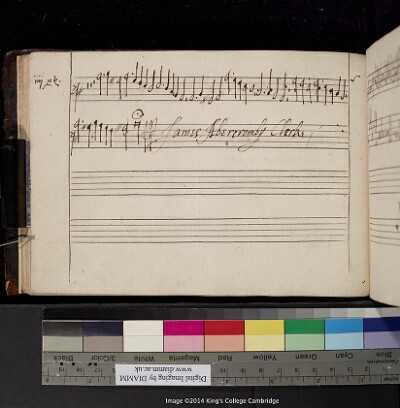 James Abercromby Clerk.
Black
3/Color
White
Magenta
Red
Yellow
Green
Cyan
Blue
Digital Imaging by DIAMM
www.diamm.ac.uk
Image ©2014 King's College Cambridge